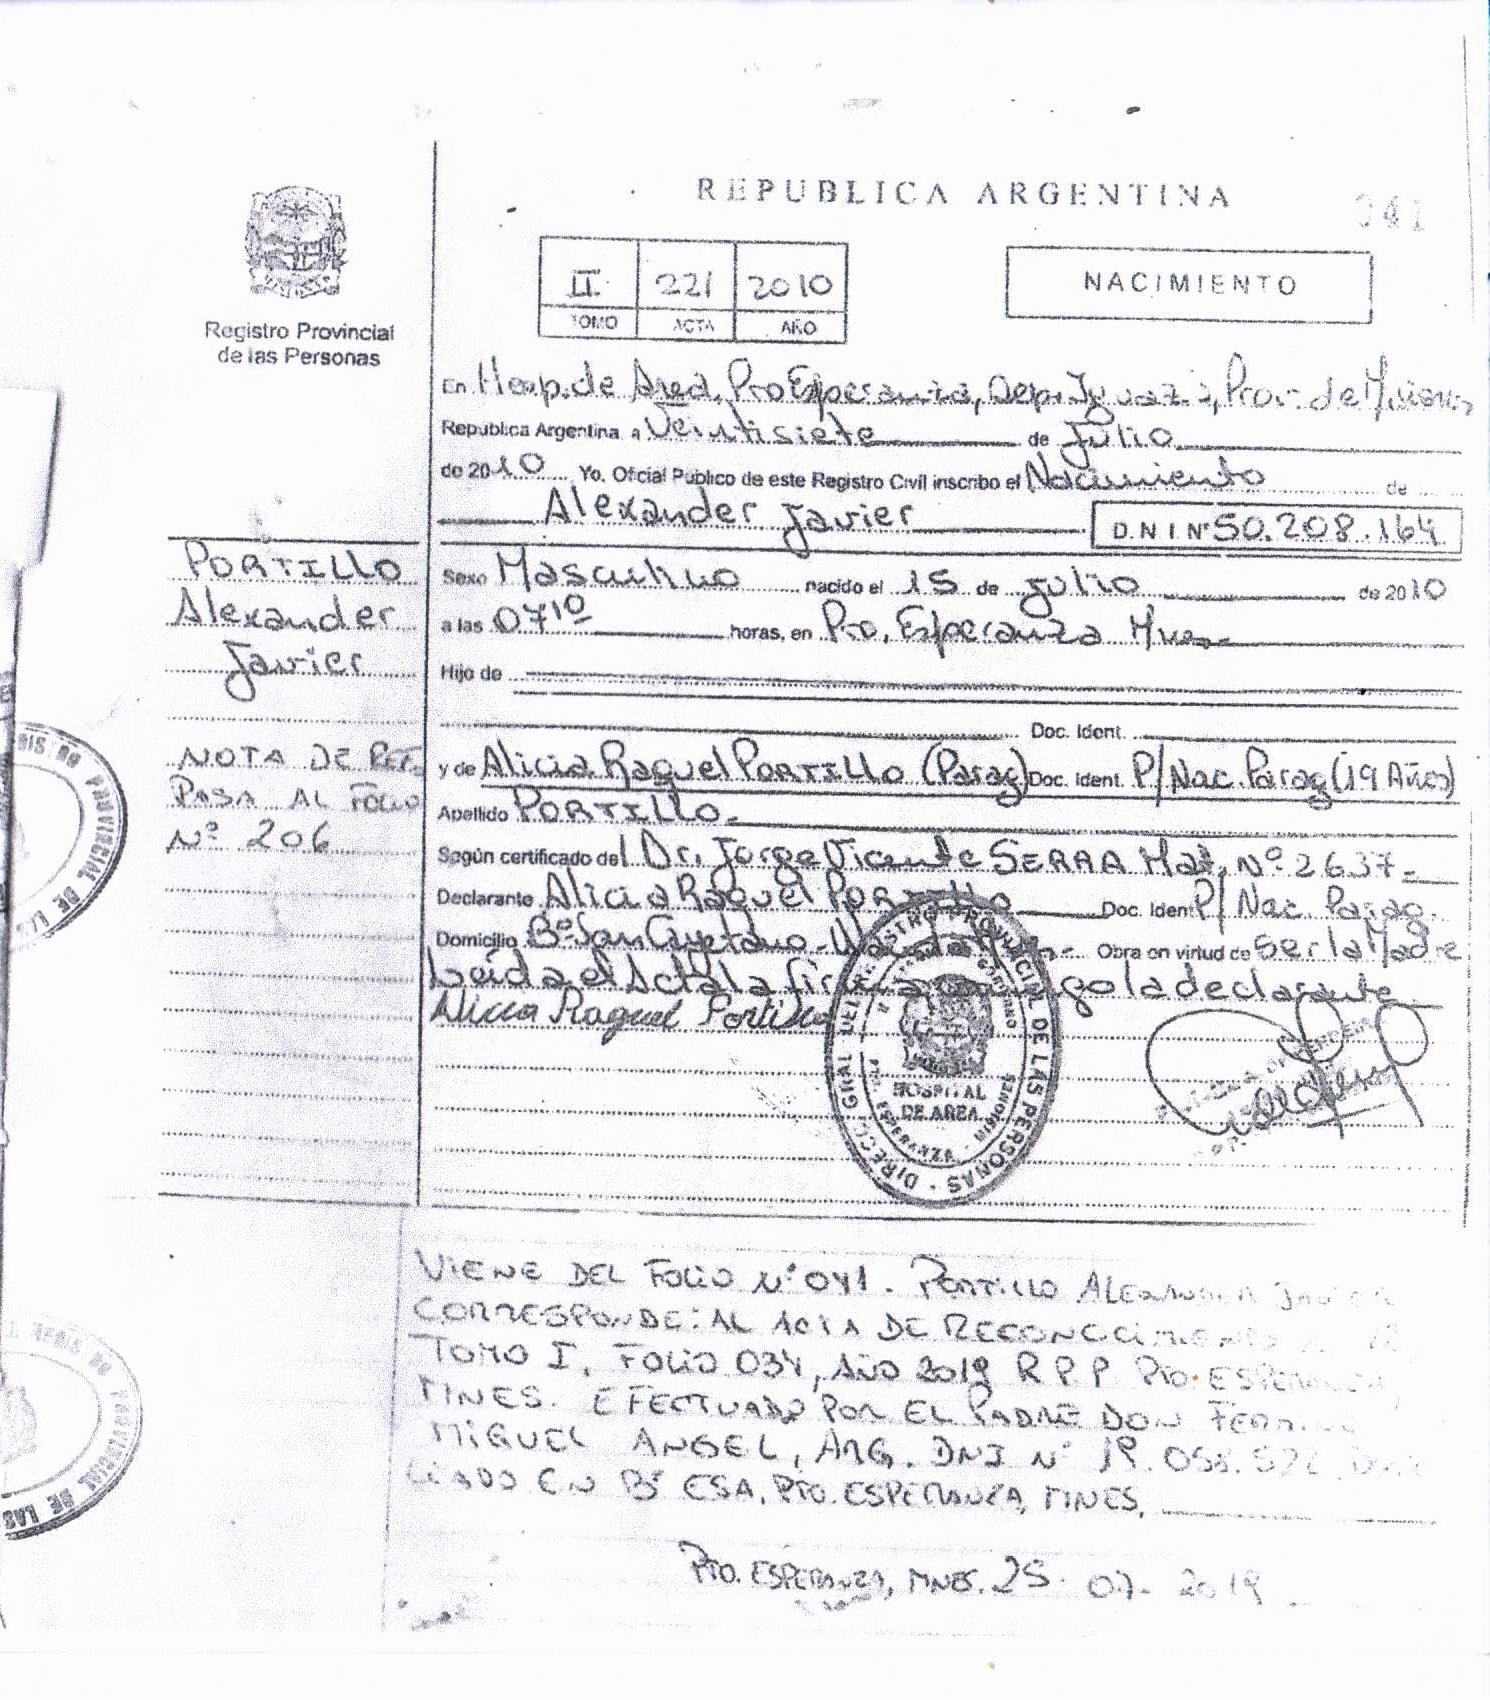 REPUBLICA ARGENTINA
041
Registro Provincial
de las Personas
II 221 2010
TOMO ACTA AÑO
NACIMIENTO
En Hosp. de Area, Pto Esperanza, Dep. Iguazú, Prov. de Misiones
República Argentina a Veintisiete de Julio
de 2010 Yo, Oficial Público de este Registro Civil inscribo el Nacimiento de
Alexander Javier
D.N.I Nº 50.208.164
PORTILLO
Alexander
Javier
NOTA DE REF.
PASA AL FOLIO
Nº 206
Sexo Masculino nacido el 15 de Julio de 2010
a las 07 10 horas, en Pto. Esperanza Mnes
Hijo de
Doc. Ident.
y de Alicia Raquel PORTILLO (Parag) Doc. Ident. P/ Nac. Parag (19 Años)
Apellido PORTILLO.
Según certificado del Dr. Jorge Vicente SERRA Mat. Nº 2637
Declarante Alicia Raquel PORTILLO Doc. Ident P/ Nac. Parag.
Domicilio Bº San Cayetano - Obra en virtud de Ser la Madre
Leída el Acta la firma la declarante
Alicia Raquel Portillo
DIRECC. GRAL DEL REGISTRO PROVINCIAL DE LAS PERSONAS
HOSPITAL
DE AREA
ESPERANZA - MISIONES
REGISTRO PROVINCIAL DE LAS
VIENE DEL FOLIO Nº 041. PORTILLO ALEXANDER JAVIER
CORRESPONDE: AL ACTA DE RECONOCIMIENTO
TOMO I, FOLIO 034, AÑO 2019 R P P PTO. ESPERANZA
MNES. EFECTUADO POR EL PADRE DON
MIGUEL ANGEL, ARG. DNI Nº
EN Bº ESA, PTO. ESPERANZA, MNES,
PTO. ESPERANZA, MNES. 25 - 07 - 2019
REGISTRO PROVINCIAL DE LAS